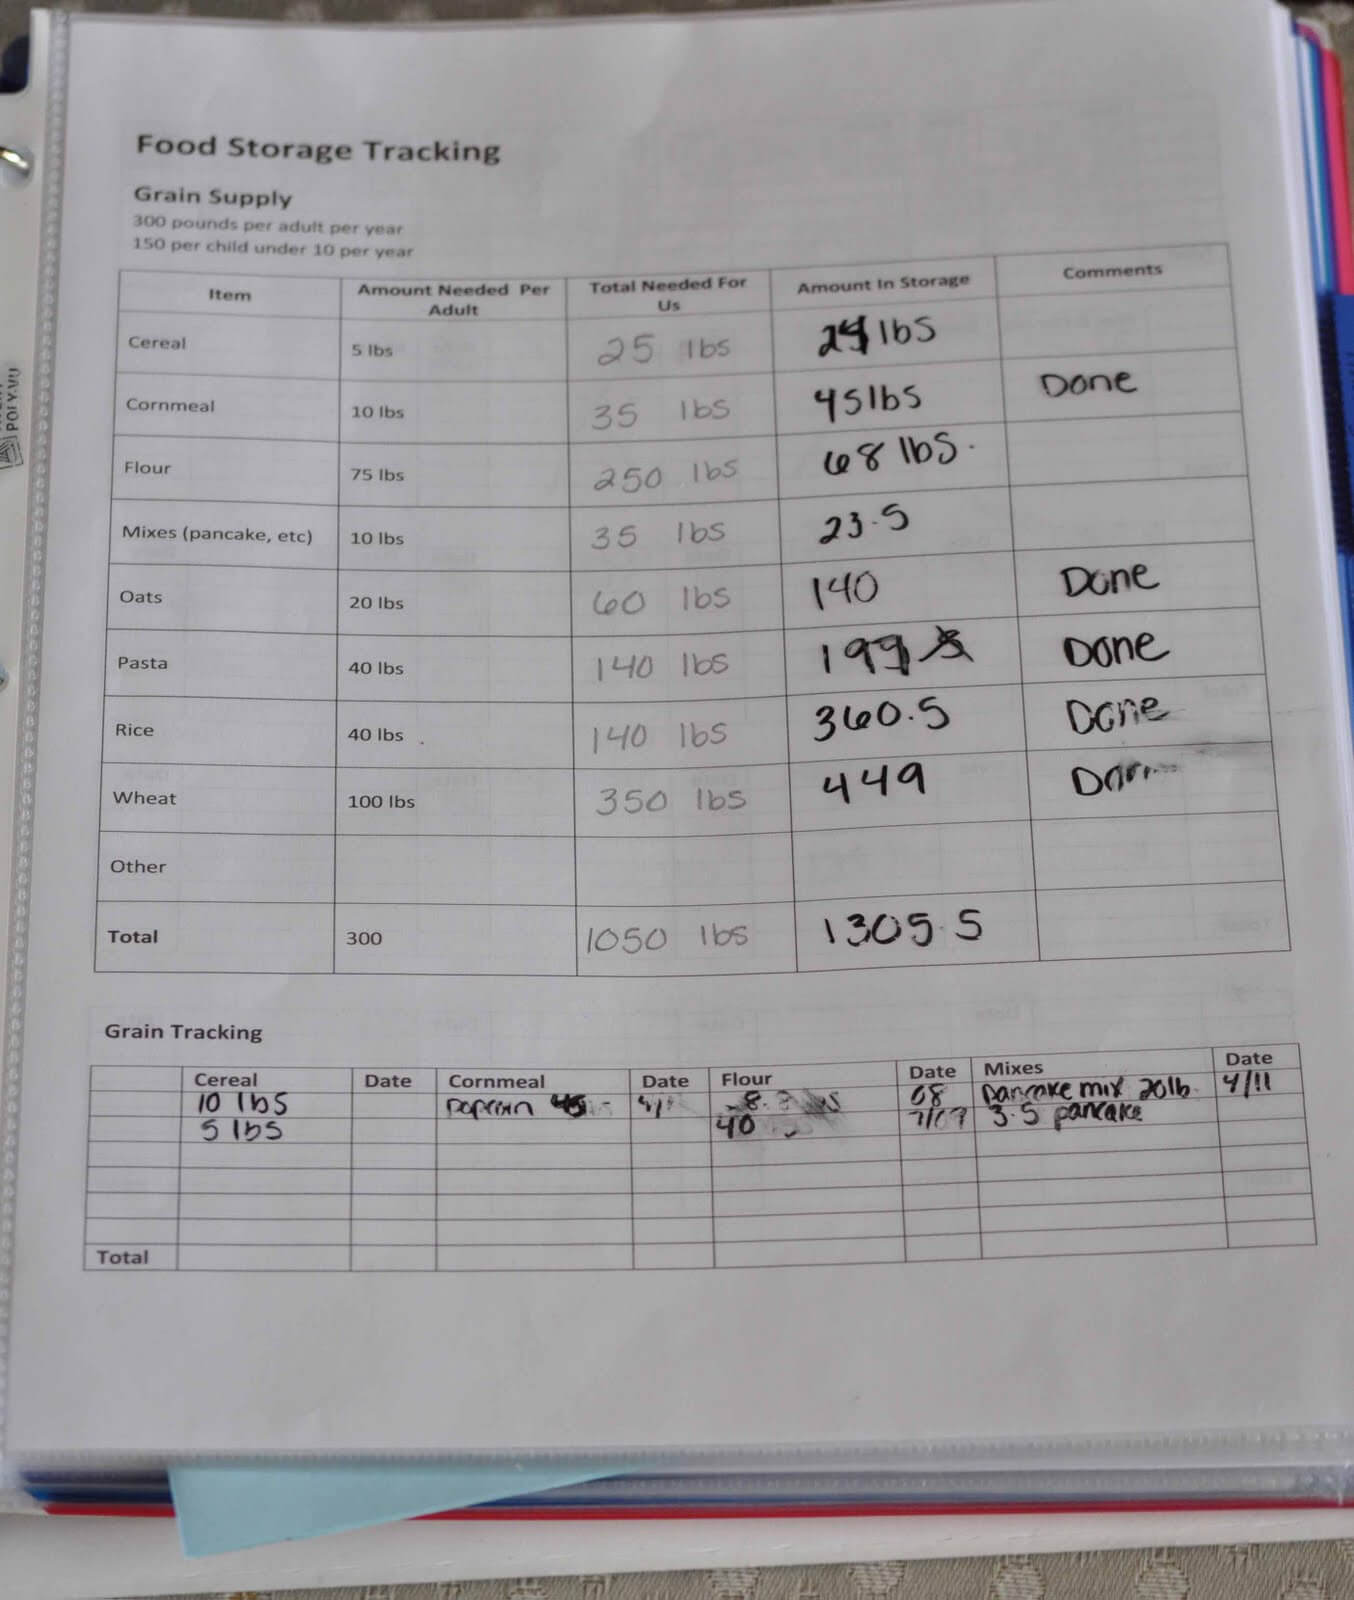 Food Storage Tracking
Grain Supply
300 pounds per adult per year
150 per child under 10 per year
Item Amount Needed Per Adult Total Needed For Us Amount In Storage Comments
Cereal 5 lbs 25 lbs lbs
Cornmeal 10 lbs 35 lbs 45 lbs Done
Flour 75 lbs 250 lbs 68 lbs.
Mixes (pancake, etc) 10 lbs 35 lbs 23.5
Oats 20 lbs 60 lbs 140 Done
Pasta 40 lbs 140 lbs 199 Done
Rice 40 lbs 140 lbs 360.5 Done
Wheat 100 lbs 350 lbs 449
Other
Total 300 1050 lbs 1305.5
Grain Tracking
Cereal Date Cornmeal Date Flour Date Mixes Date
10 lbs popcorn 45 08 pancake mix 20lb. 4/11
5 lbs 40 3.5 pancake
Total
POLY-VU